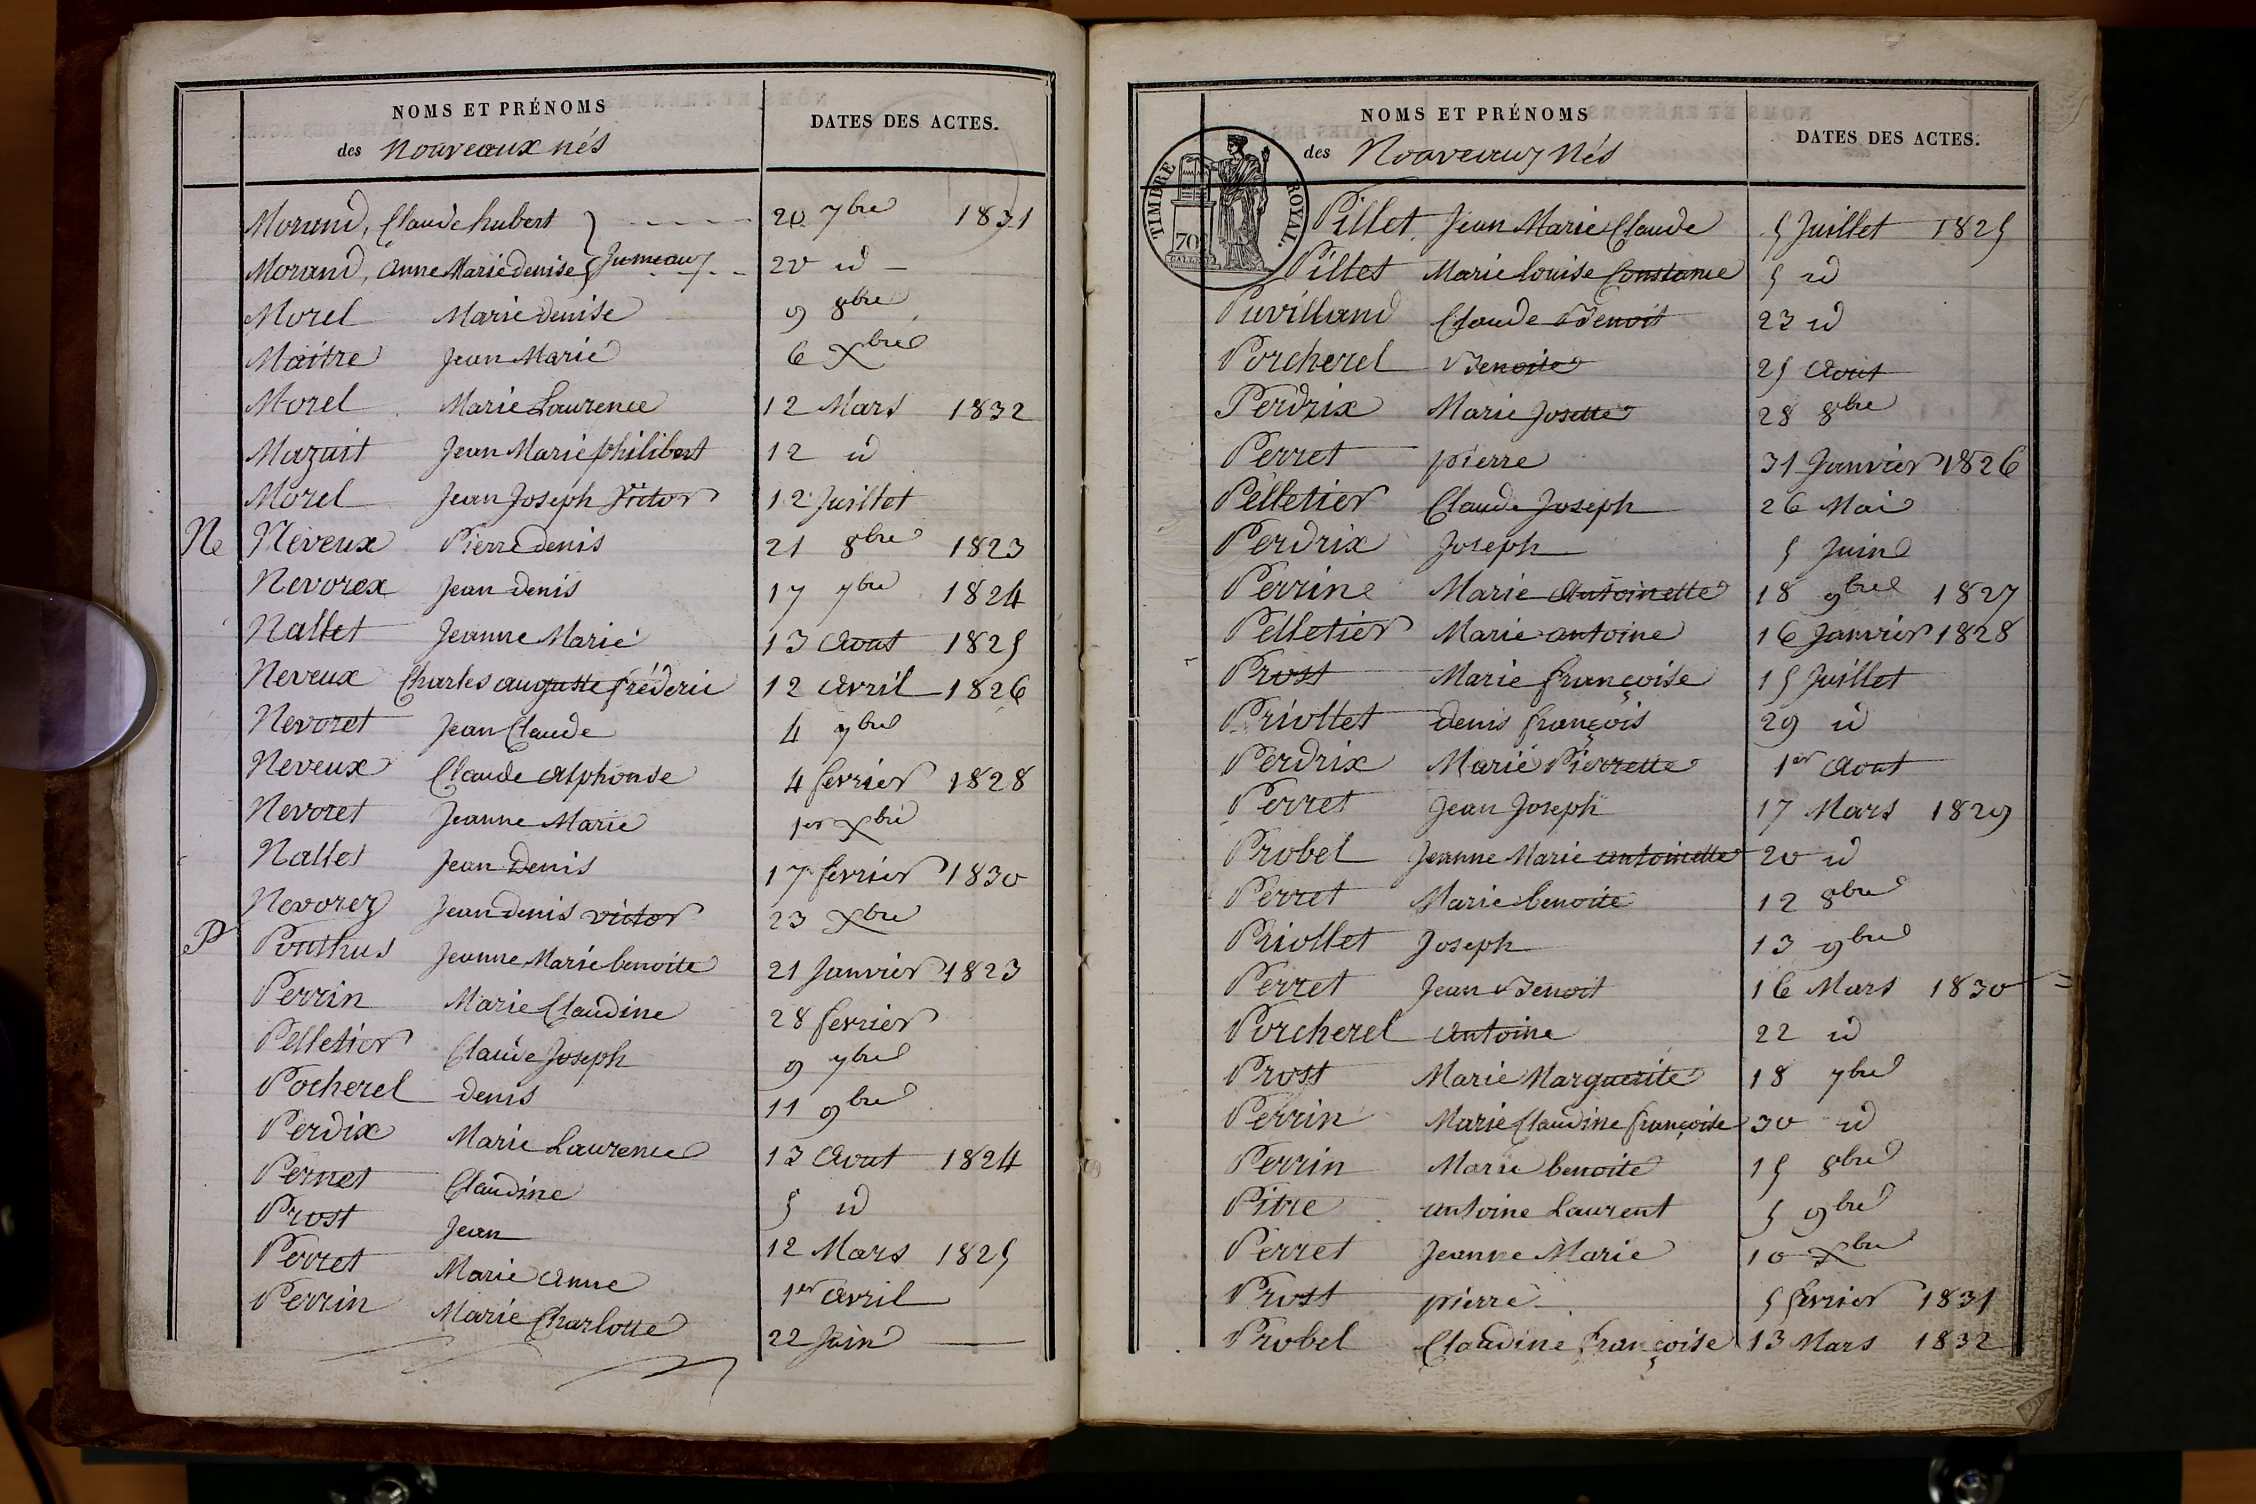 NOMS ET PRÉNOMS
des Nouveaux nés
DATES DES ACTES.
Morand, Claude hubert 20 7bre 1831
Morand, Anne Marie denise Jumeaux 20 id
Morel Marie denise 9 8bre
Maitre Jean Marie 6 Xbre
Morel Marie Laurence 12 Mars 1832
Mazuit Jean Marie philibert 12 id
Morel Jean Joseph Victor 12 Juillet
N Neveux Pierre denis 21 8bre 1823
Nevorex Jean denis 17 7bre 1824
Nallet Jeanne Marie 13 Aout 1825
Neveux Charles auguste fréderic 12 Avril 1826
Nevoret Jean Claude 4 7bre
Neveux Claude Alphonse 4 fevrier 1828
Nevoret Jeanne Marie 1er Xbre
Nallet Jean Denis 17 fevrier 1830
Nevorez Jean denis victor 23 Xbre
P Ponthus Jeanne Marie benoite 21 Janvier 1823
Perrin Marie Claudine 28 fevrier
Pelletier Claude Joseph 9 7bre
Pocherel denis 11 9bre
Perdix Marie Laurence 13 Aout 1824
Pernet Claudine 5 id
Prost Jean 12 Mars 1825
Perret Marie Anne 1er Avril
Perrin Marie Charlotte 22 Juin
NOMS ET PRÉNOMS
des Nouveaux Nés
DATES DES ACTES.
TIMBRE ROYAL.
70
Pillet Jean Marie Claude 5 Juillet 1825
Pillet Marie louise Constance 5 id
Puvilland Claude Benoit 23 id
Porcherel Benoite 25 Aout
Perdrix Marie Josette 28 8bre
Perret pierre 31 Janvier 1826
Pelletier Claude Joseph 26 Mai
Perdrix Joseph 5 Juin
Perrine Marie Antoinette 18 9bre 1827
Pelletier Marie antoine 16 Janvier 1828
Prost Marie françoise 15 Juillet
Priollet denis françois 29 id
Perdrix Marie Pierrette 1er Aout
Perret Jean Joseph 17 Mars 1829
Probel Jeanne Marie antoinette 20 id
Perret Marie benoite 12 8bre
Priollet Joseph 13 9bre
Perret Jean Benoit 16 Mars 1830
Porcherel Antoine 22 id
Prost Marie Marguerite 18 7bre
Perrin Marie Claudine françoise 30 id
Perrin Marie benoite 15 8bre
Pitre antoine Laurent 5 9bre
Perret Jeanne Marie 10 Xbre
Prost pierre 5 fevrier 1831
Probel Claudine françoise 13 Mars 1832